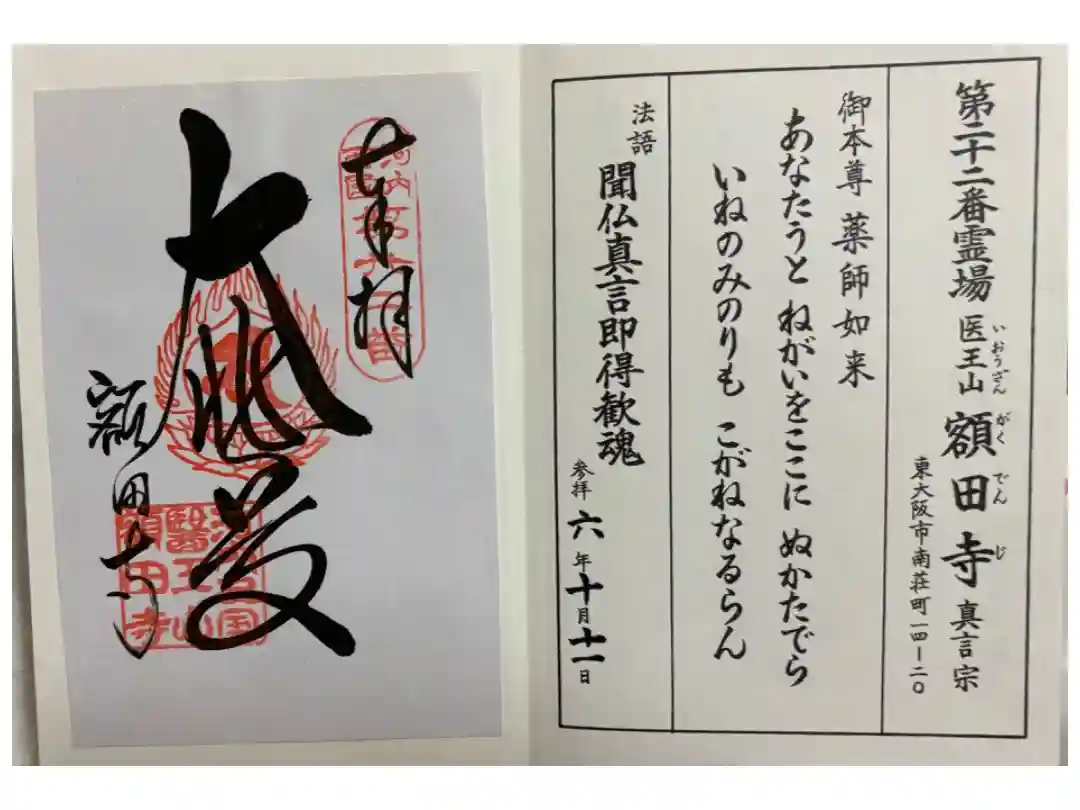 第二十二番霊場 医王山 額田寺 真言宗
いおうざん がくでんじ
東大阪市南荘町一四ー二〇
御本尊 薬師如来
あなたうと ねがいをここに ぬかたでら
いねのみのりも こがねなるらん
法語 聞仏真言即得歓魂
参拝 六年十月十一日
奉拝
大悲
額田寺
医王山
額田寺